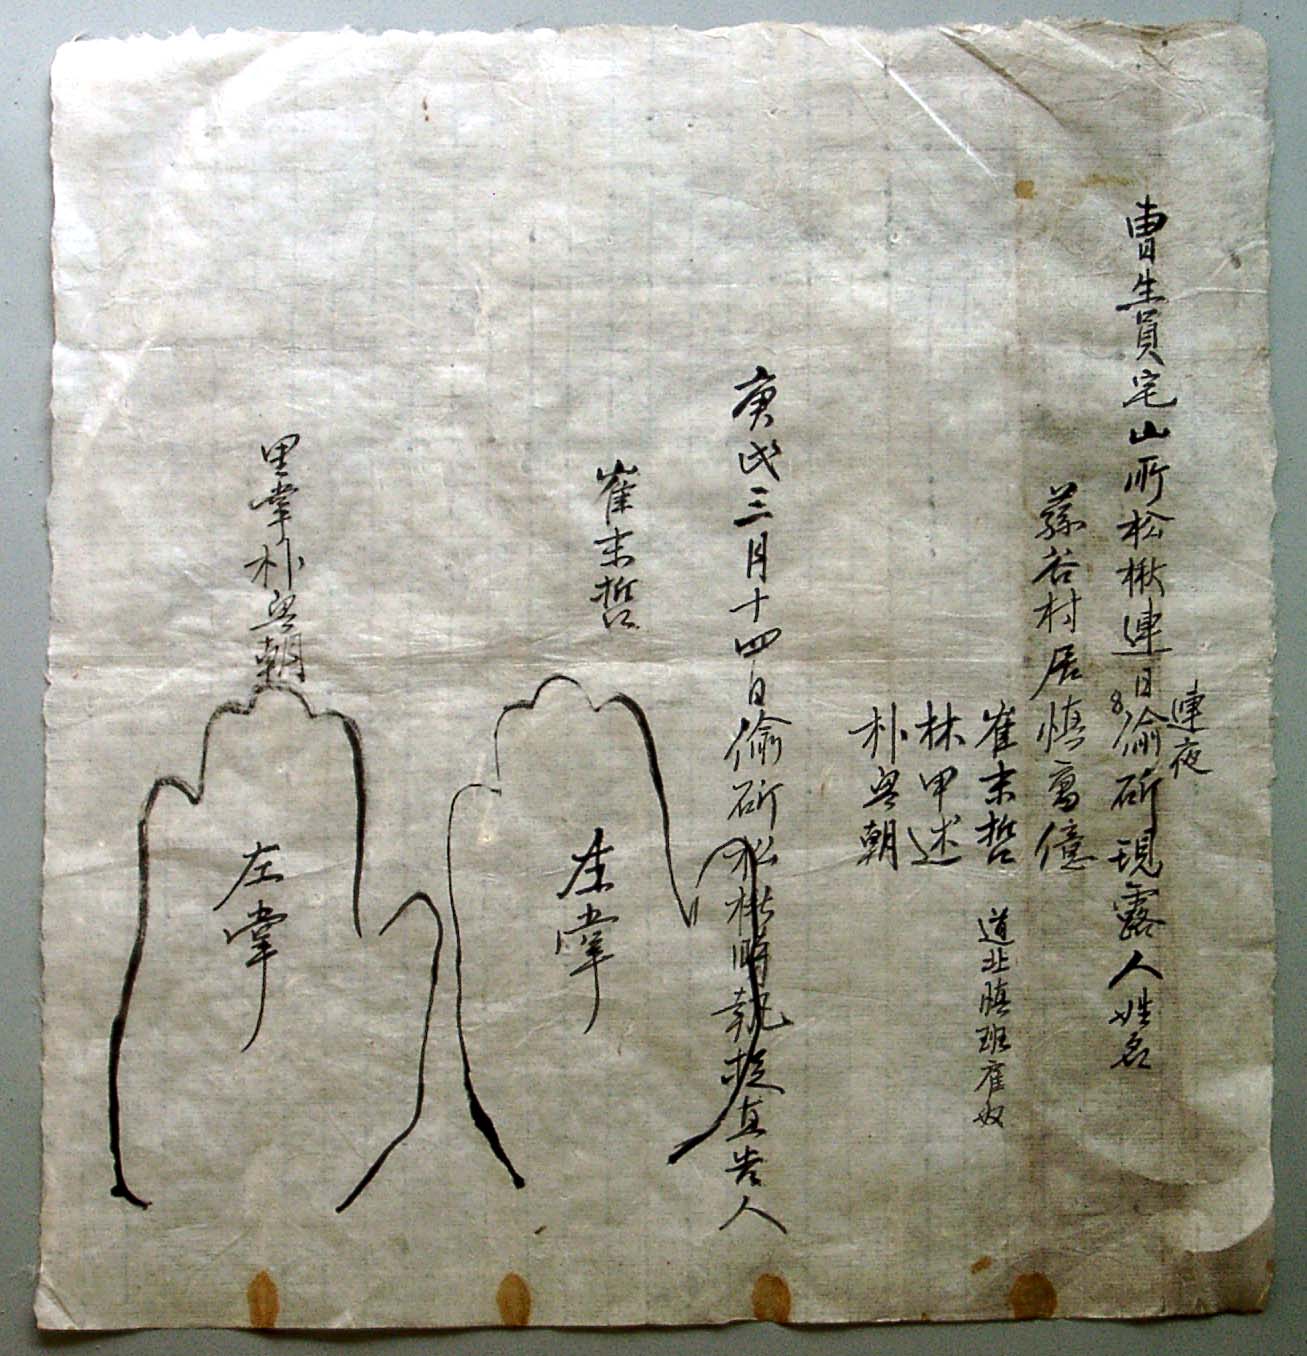 曺生員宅山所松楸連日偷斫現露人姓名
連夜
蓀谷村居愼萬億
崔末哲 道北愼班雇奴
林甲述
朴興朝
庚戌三月十四日偷斫松楸時執捉直告人
崔末哲
左掌
里掌朴興朝
左掌